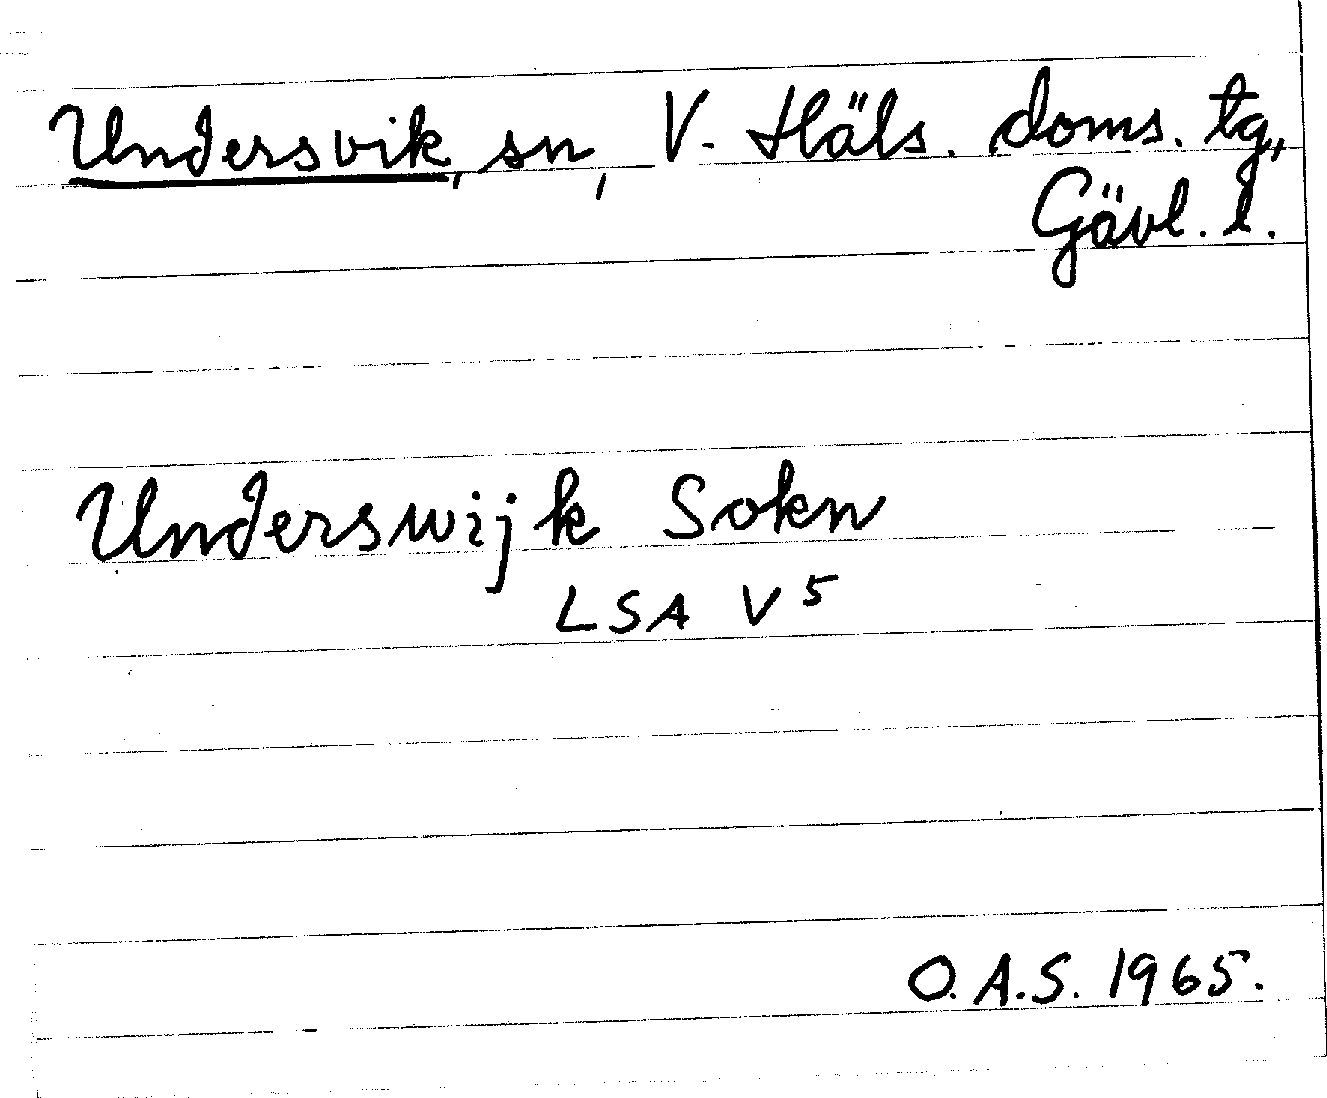 Undersvik, sn, V. Häls. doms. tg,
Gävl. l.
Underswijk Sokn
LSA V 5
O.A.S. 1965.